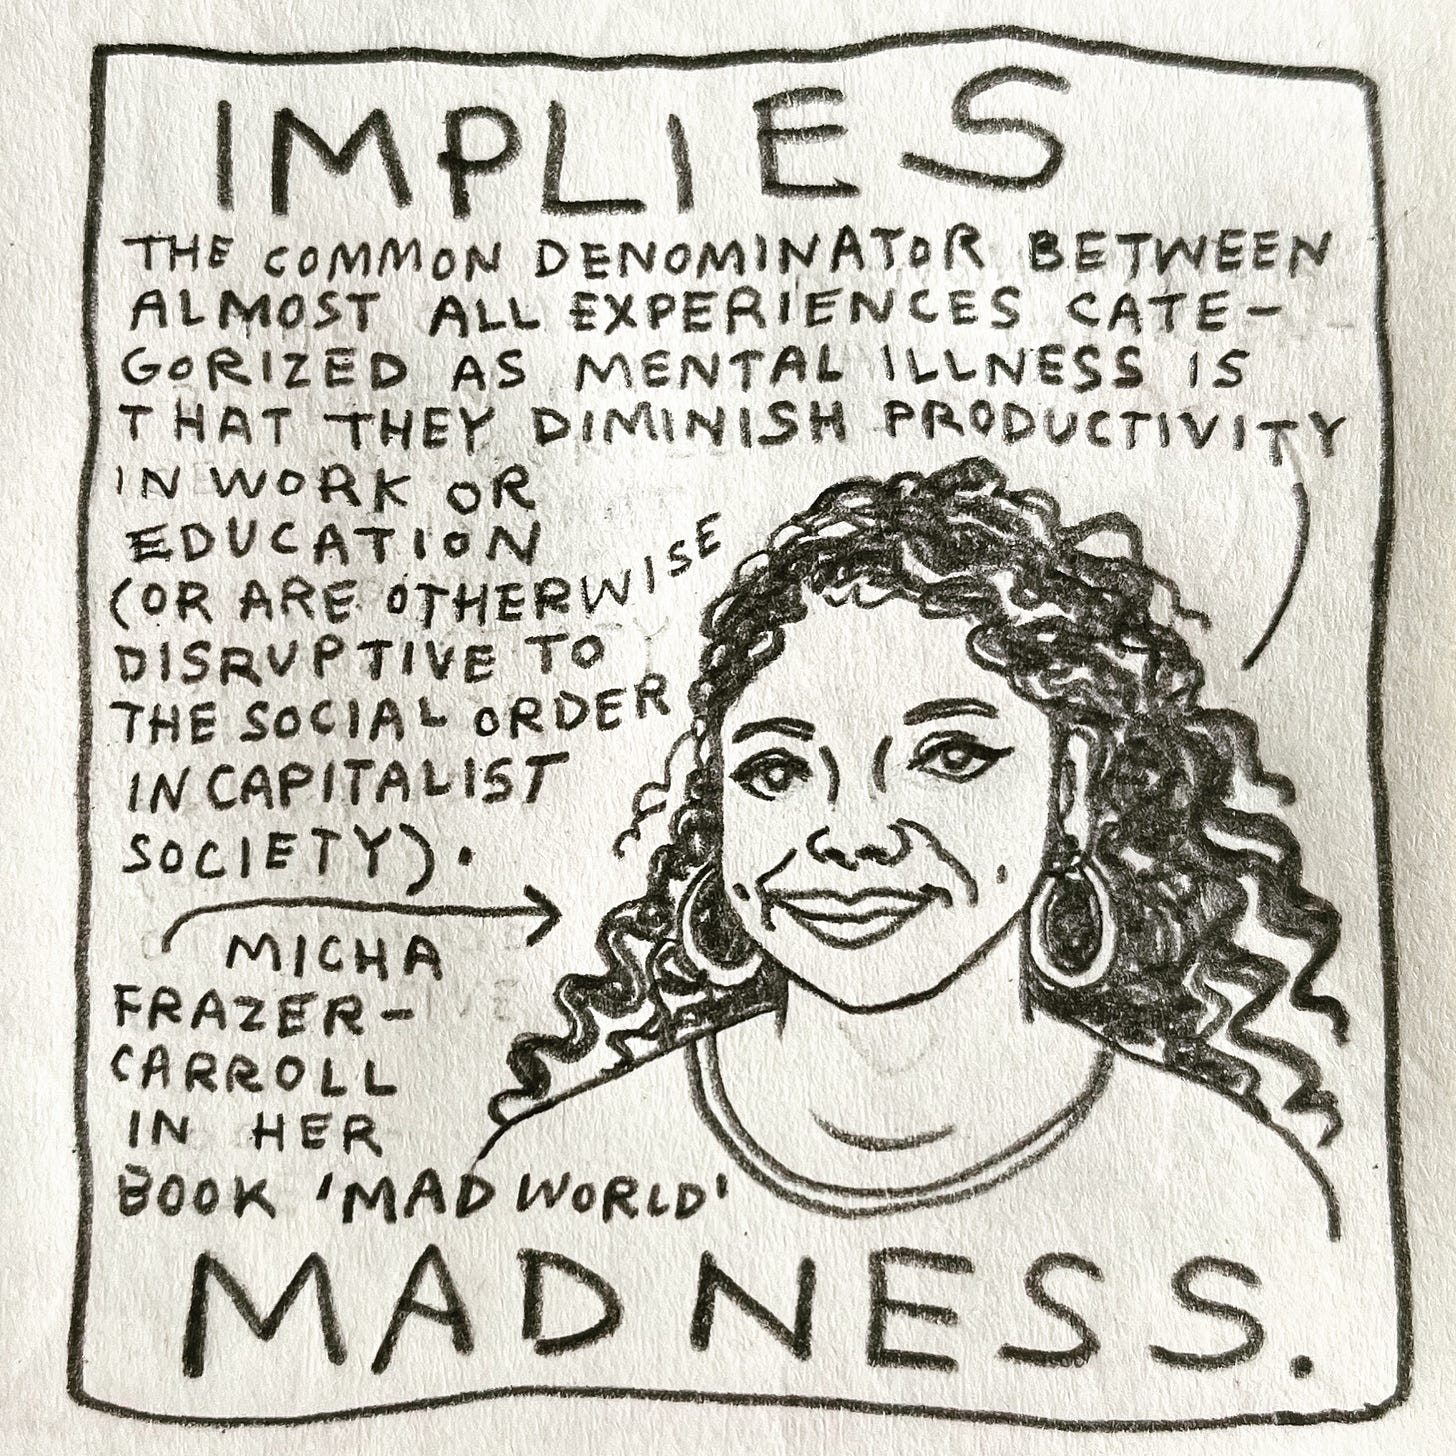 IMPLIES
THE COMMON DENOMINATOR BETWEEN
ALMOST ALL EXPERIENCES CATE-
GORIZED AS MENTAL ILLNESS IS
THAT THEY DIMINISH PRODUCTIVITY
IN WORK OR
EDUCATION
(OR ARE OTHERWISE
DISRUPTIVE TO
THE SOCIAL ORDER
IN CAPITALIST
SOCIETY).
MICHA
FRAZER-
CARROLL
IN HER
BOOK 'MAD WORLD'
MADNESS.